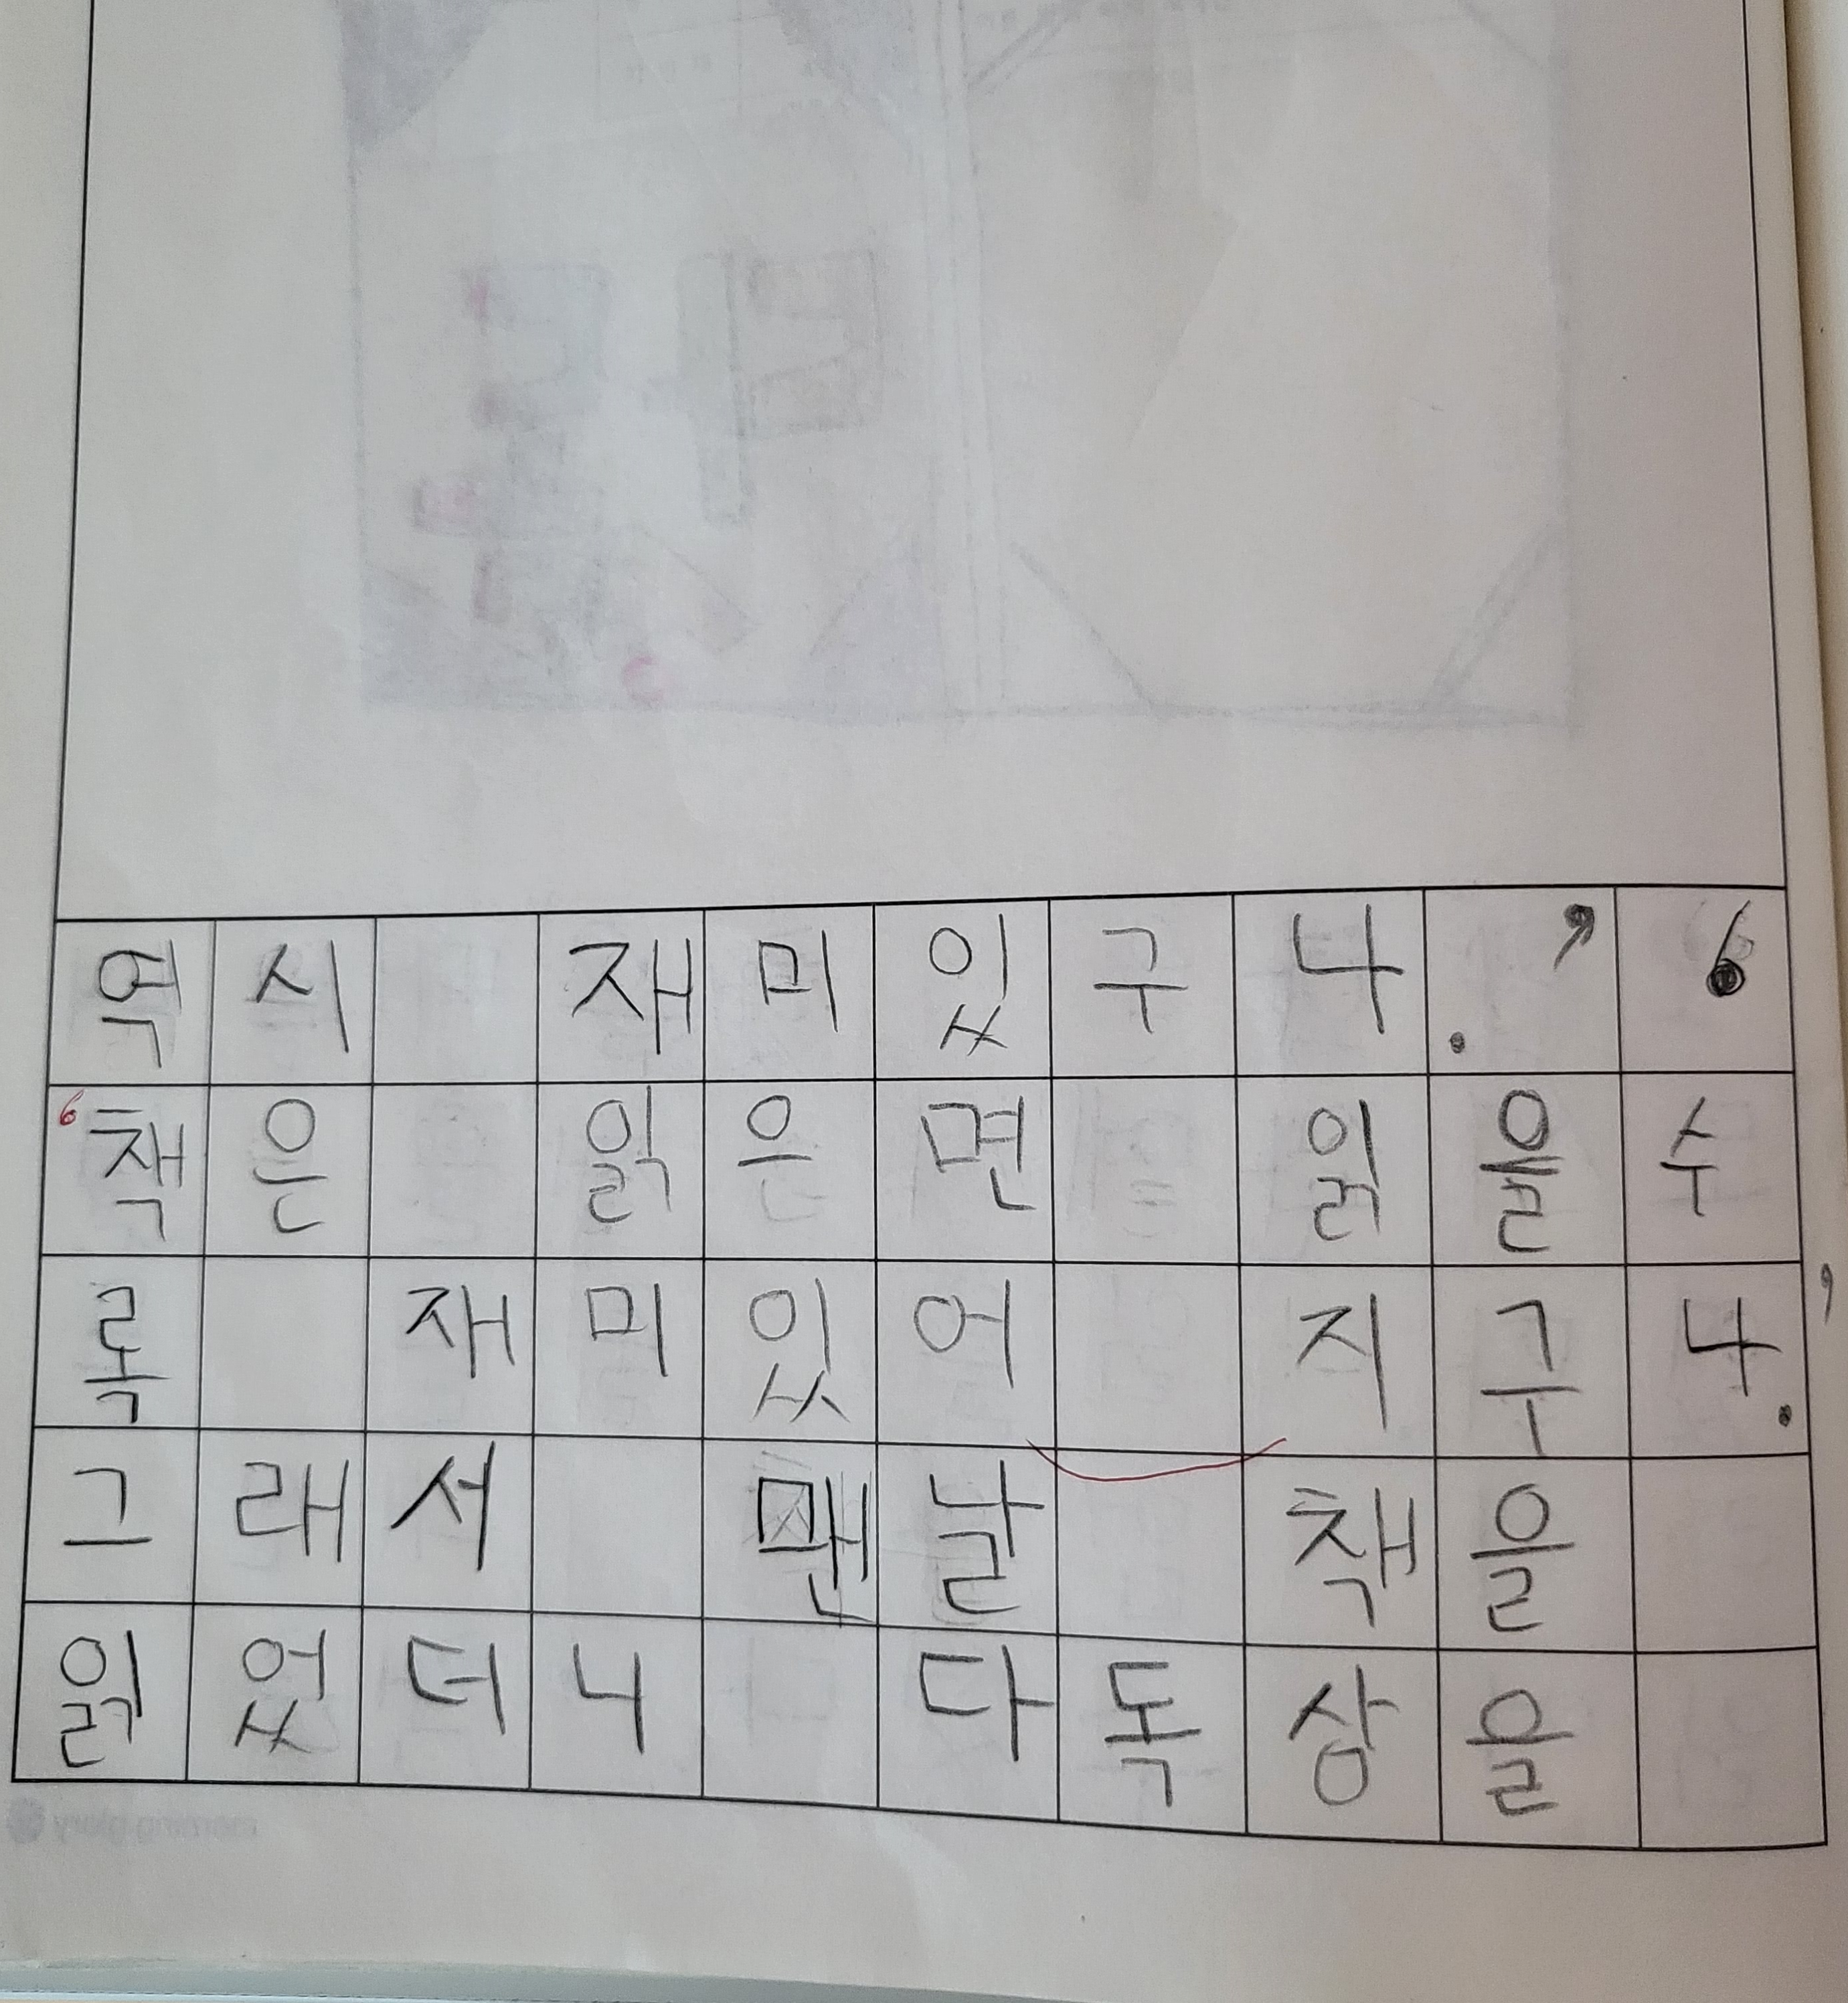 역시 재미있구나.’ ‘
‘책은 읽은면 읽을수
록 재미있어 지구나.’
그래서 맨날 책을
읽었더니 다독상을
morning glory